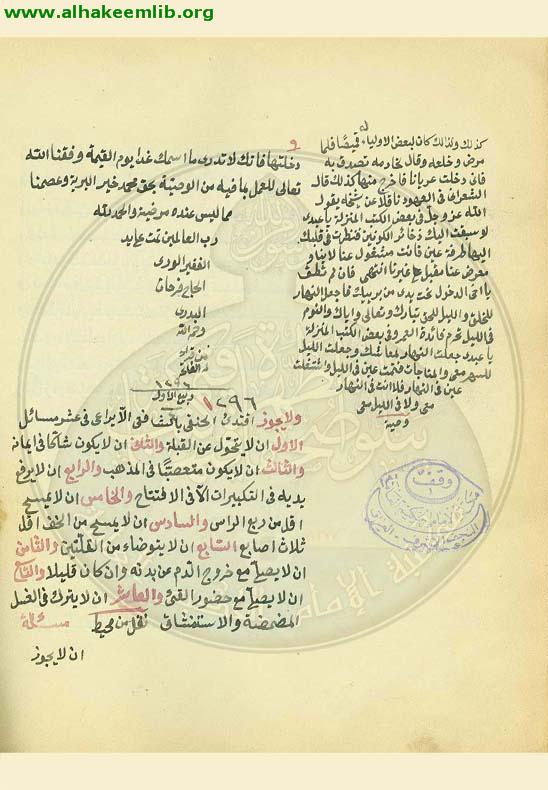 www.alhakeemlib.org
كذلك ولذلك كان لبعض الاولياء قميصا فلما
مرض وخلعه وقال لخادمه تصدق به
فانى دخلت عريانا فاخرج منها كذلك قال
الشعرانى فى العهود ناقلا عن شيخه يقول
الله عز وجل فى بعض الكتب المنزلة يا عبدى
لو سيقت اليك ذخائر الكونين فنظرت فى قلبك
اليها طرفة عين فانت مشغول عنا لا بنا و
معرض عنا مقبل على غيرنا انتهى فان لم تطق
يا اخى الدخول تحت يدى من يربيك فاجعل النهار
للخلق والليل للحق تبارك وتعالى واياك والنوم
فى الليل تحرم فائدة العمر وفى بعض الكتب المنزلة
يا عبدى جعلت النهار لمعاشك وجعلت الليل
للسهر معى والمناجات فنمت عنى فى الليل واشتغلت
عنى فى النهار فلا انت فى النهار
معى ولا فى الليل معى
وصية
و
دخلتها فانك لا تدرى ما اسمك غدا يوم القيمة وفقنا الله
تعالى للعمل بما فيه من الوصية بحق محمد خير البرية وعصمنا
مما ليس عنده مرضية والحمد لله
رب العالمين تمت
الفقير الورى
الحاج فرحات
البدرى
١٢٩٦
ربيع الاول
١٢٩٦
ولا يجوز اقتداء الحنفى بالشفعى الا يراعى فى عشر مسائل
الاول ان لا يتحول عن القبلة والثانى ان لا يكون شاكا فى ايمانه
والثالث ان لا يكون متعصبا فى المذهب والرابع ان لا يرفع
يديه فى التكبيرات الا فى الافتتاح والخامس ان لا يمسح
اقل من ربع الراس والسادس ان لا يمسح من الخف اقل
ثلاث اصابع السابع ان لا يتوضاء من القلتين والثامن
ان لا يصلى مع خروج الدم عن بدنه وان كان قليلا والتاسع
ان لا يصلى مع حضور القئ والعاشر ان لا يترك فى الغسل
المضمضة والاستنشاق نقل من محيط مسئلة
ان لا يجوز
وقف